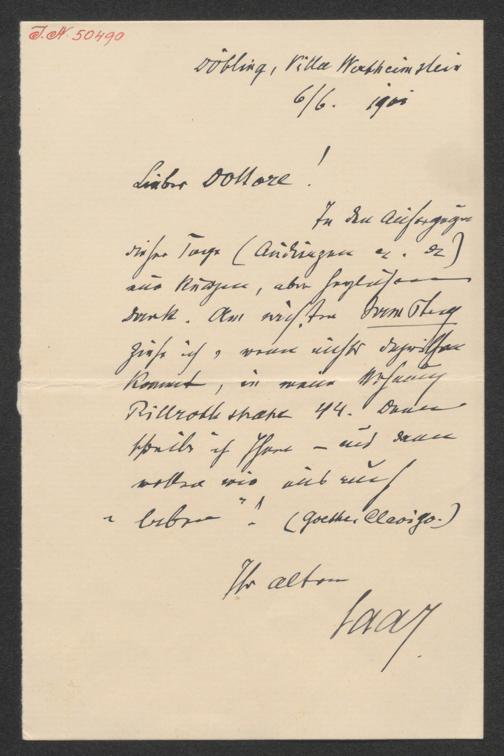 J.N. 50490
Döbling, Villa Wertheimstein
6/6. 1901
Lieber Dottore!
In den Aufregungen
dieser Tage (Audienzen etc. etc.)
nur kurzen, aber herzlichen
Dank. Am nächsten Samstag
ziehe ich, wenn nichts dazwischen
kommt, in meine Wohnung
Billrothstraße 44. Dann
schreibe ich Ihnen – und dann
wollen wir uns auch
"leben"! (Goethes Clavigo.)
Ihr alter
Saar